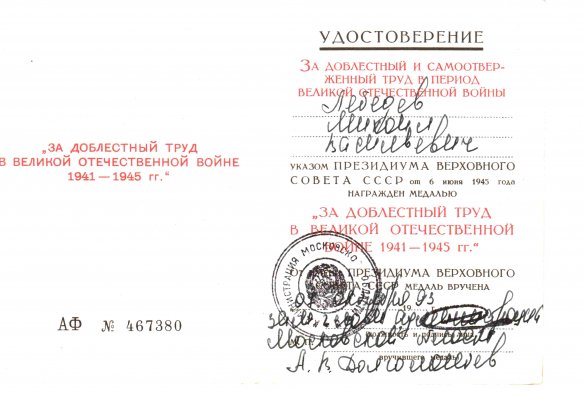 „ЗА ДОБЛЕСТНЫЙ ТРУД
В ВЕЛИКОЙ ОТЕЧЕСТВЕННОЙ ВОЙНЕ
1941—1945 гг.“
АФ № 467380
УДОСТОВЕРЕНИЕ
ЗА ДОБЛЕСТНЫЙ И САМООТВЕР-
ЖЕННЫЙ ТРУД В ПЕРИОД
ВЕЛИКОЙ ОТЕЧЕСТВЕННОЙ ВОЙНЫ
Лебедев
Михаил
Васильевич
УКАЗОМ ПРЕЗИДИУМА ВЕРХОВНОГО
СОВЕТА СССР от 6 июня 1945 года
НАГРАЖДЕН МЕДАЛЬЮ
„ЗА ДОБЛЕСТНЫЙ ТРУД
В ВЕЛИКОЙ ОТЕЧЕСТВЕННОЙ
ВОЙНЕ 1941—1945 гг.“
ОТ ПРЕЗИДИУМА ВЕРХОВНОГО
СОВЕТА СССР МЕДАЛЬ ВРУЧЕНА
93
Московской области
вручившего медаль
А. В. Долголаптев